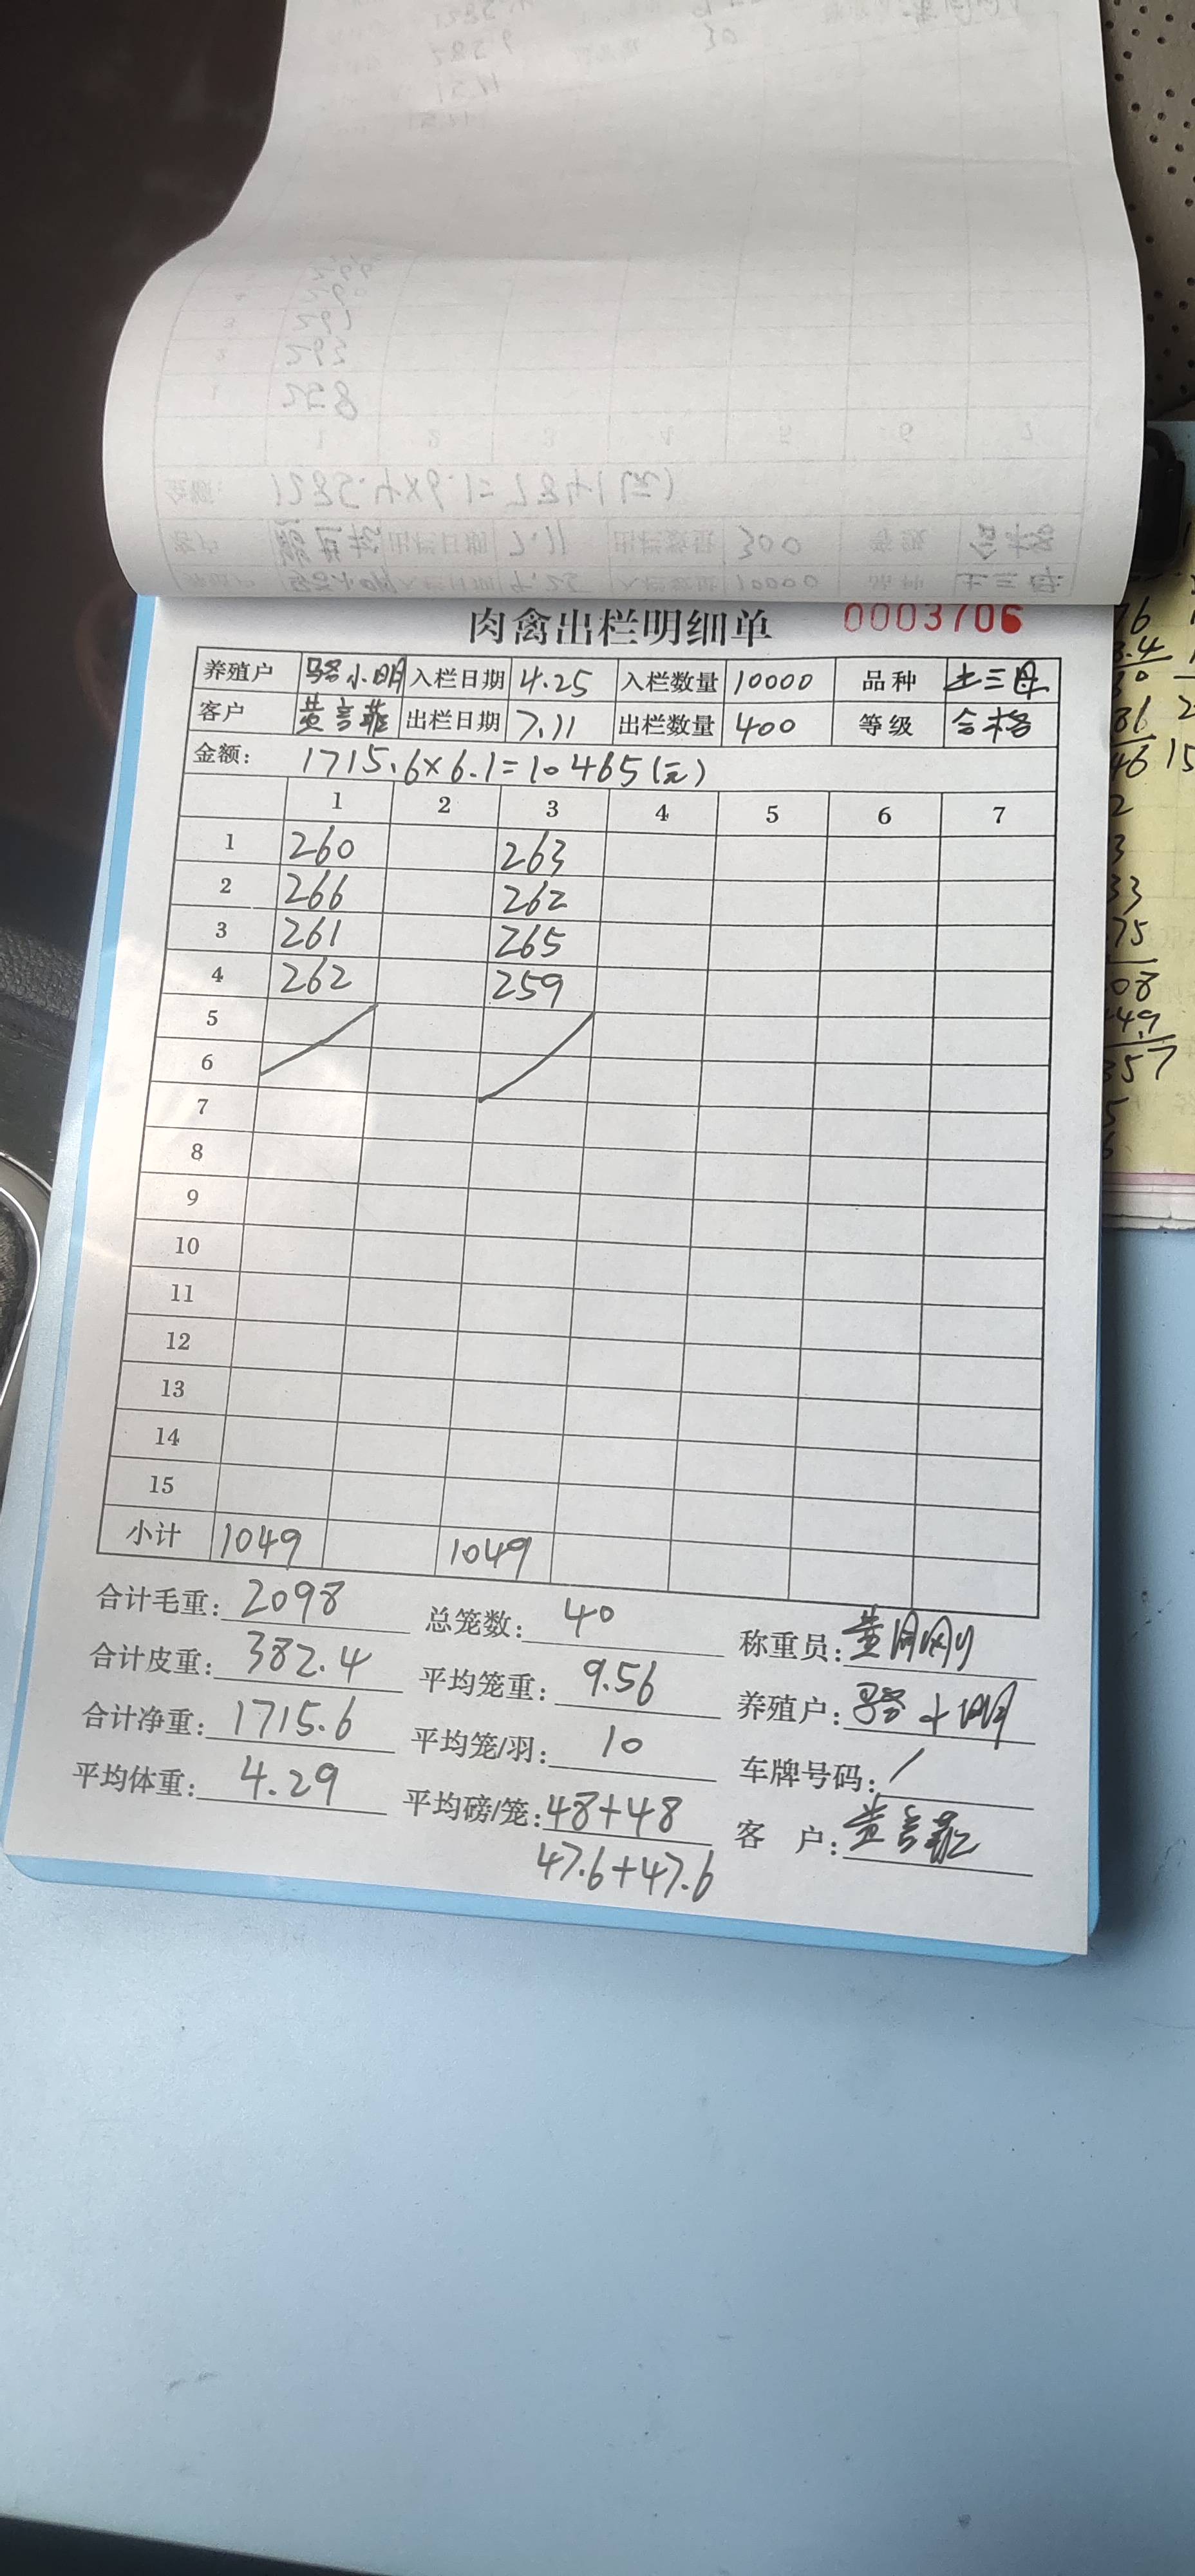 肉禽出栏明细单 0003706
养殖户 骆小明 入栏日期 4.25 入栏数量 10000 品种 土三母
客户 黄言菲 出栏日期 7.11 出栏数量 400 等级 合格
金额: 1715.6×6.1=10465(元)
1 2 3 4 5 6 7
1 260 263
2 266 262
3 261 265
4 262 259
5
6
7
8
9
10
11
12
13
14
15
小计 1049 1049
合计毛重: 2098 总笼数: 40 称重员:
合计皮重: 382.4 平均笼重: 9.56 养殖户: 骆小明
合计净重: 1715.6 平均笼/羽: 10 车牌号码: /
平均体重: 4.29 平均磅/笼: 48+48 客 户: 黄言菲
47.6+47.6